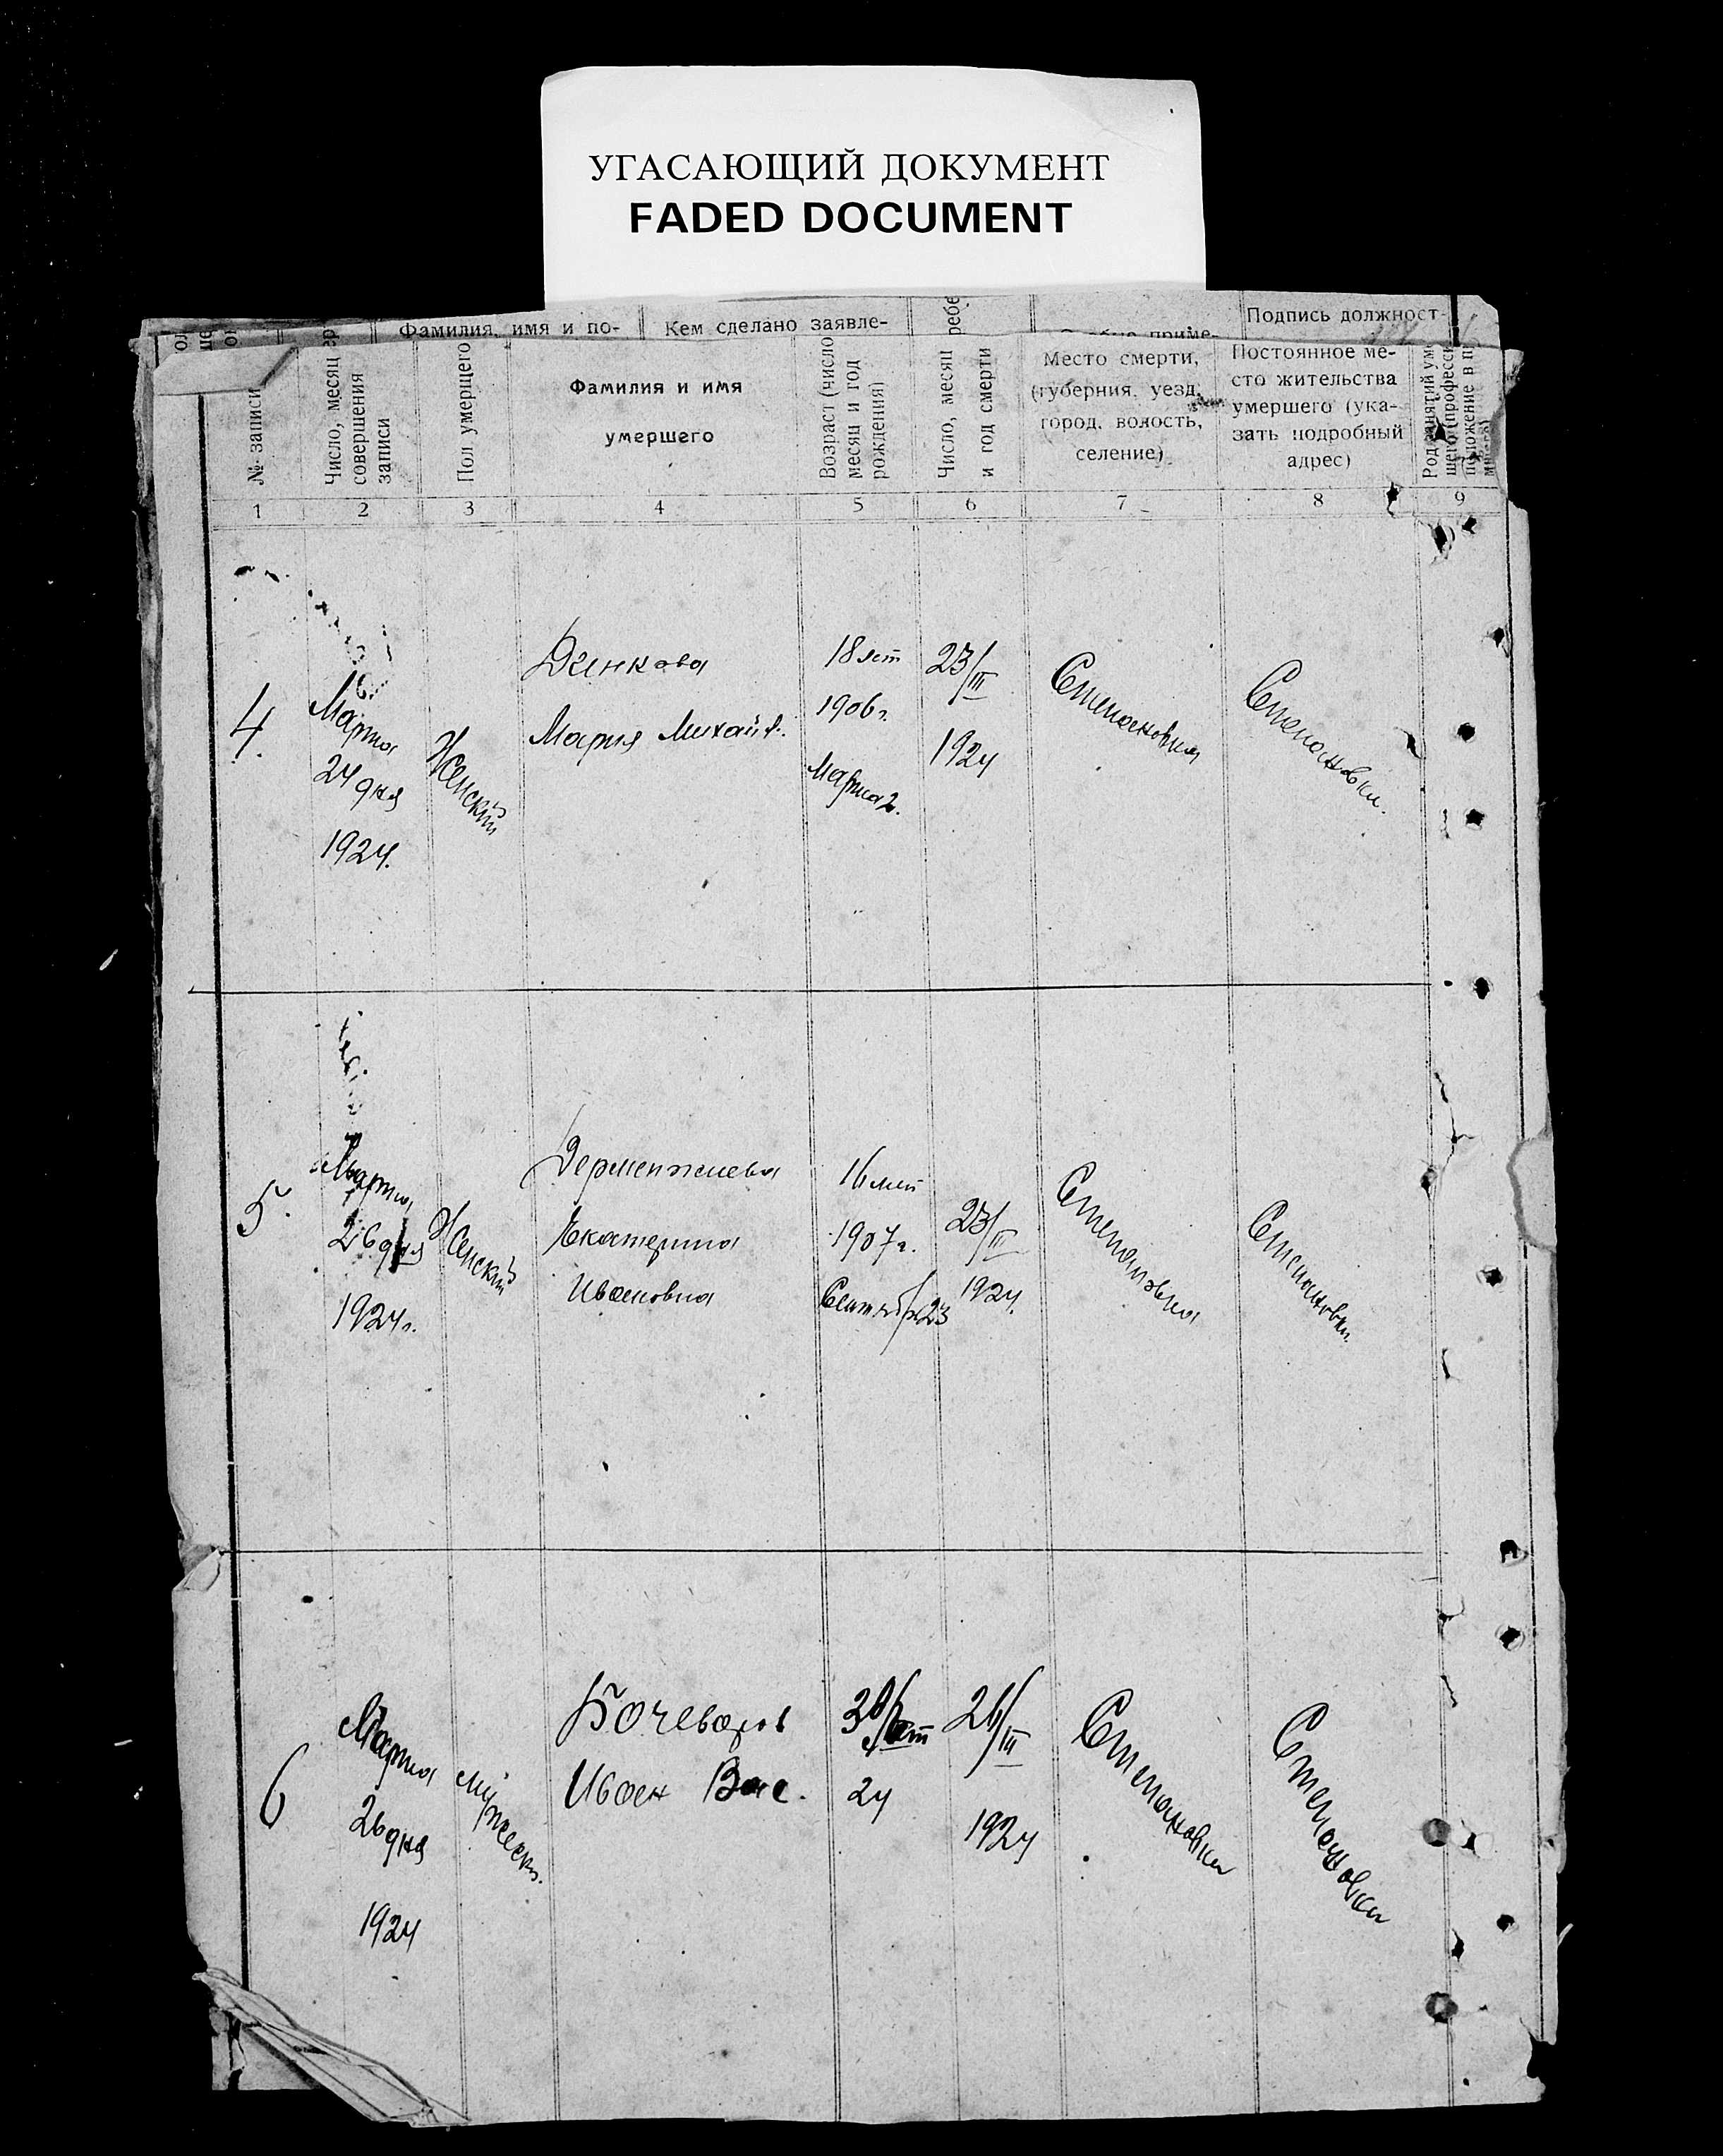 УГАСАЮЩИЙ ДОКУМЕНТ
FADED DOCUMENT
Фамилия, имя и по-
Кем сделано заявле-
Подпись должност-
№ записи
Число, месяц
совершения
записи
Пол умерщего
Фамилия и имя
умершего
Возраст (число
месяц и год
рождения)
Число, месяц
и год смерти
Место смерти,
(губерния, уезд,
город, волость,
селение)
Постоянное ме-
сто жительства
умершего (ука-
зать подробный
адрес)
1 2 3 4 5 6 7 8 9
4.
Марта
24 дня
1924.
Женский
Динкова
Мария Михайл.
18 лет
1906 г.
Марта 2.
23/III
1924
Степановка
Степановка.
5.
Марта
26 дня
1924 г.
Женский
Дерментжиева
Екатерина
Ивановна
16 лет
1907 г.
Сентября 23
23/II
1924.
Степановка
Степановка.
6
Марта
26 дня
1924
Мужеск.
Бочеваров
Иван Вас.
24
26/III
1924
Степановка
Степановка